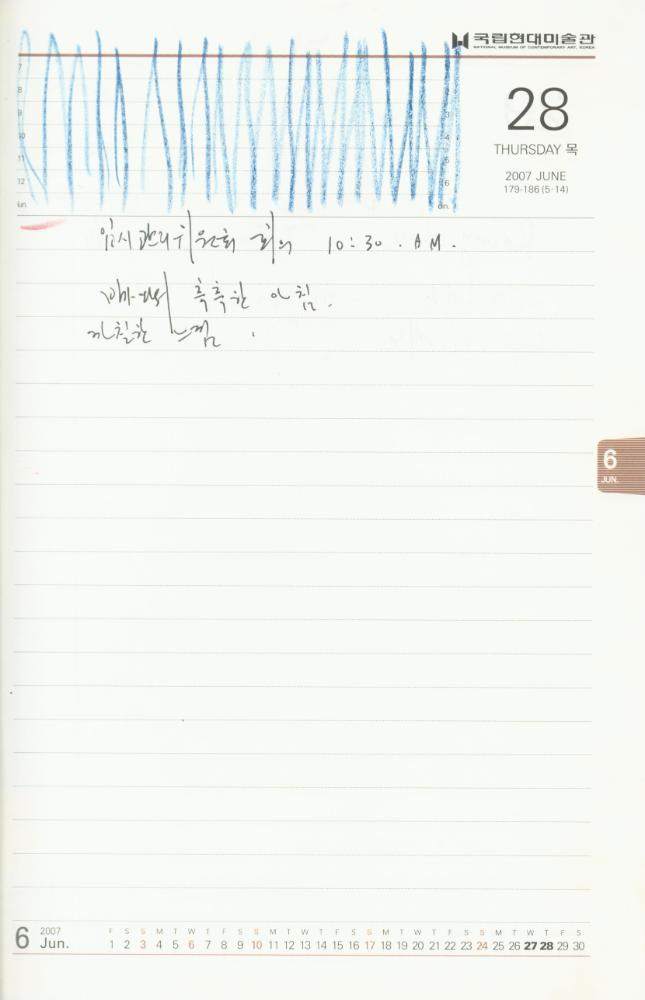 국립현대미술관
NATIONAL MUSEUM OF CONTEMPORARY ART, KOREA
28
THURSDAY 목
2007 JUNE
179-186 (5·14)
7
8
9
10
11
12
lun.
3
4
5
6
din.
임시관리위원회 회의 10:30. AM.
흑흑한 아침.
느낌.
6
JUN.
6 2007 Jun.
F S S M T W T F S S M T W T F S S M T W T F S S M T W T F S
1 2 3 4 5 6 7 8 9 10 11 12 13 14 15 16 17 18 19 20 21 22 23 24 25 26 27 28 29 30